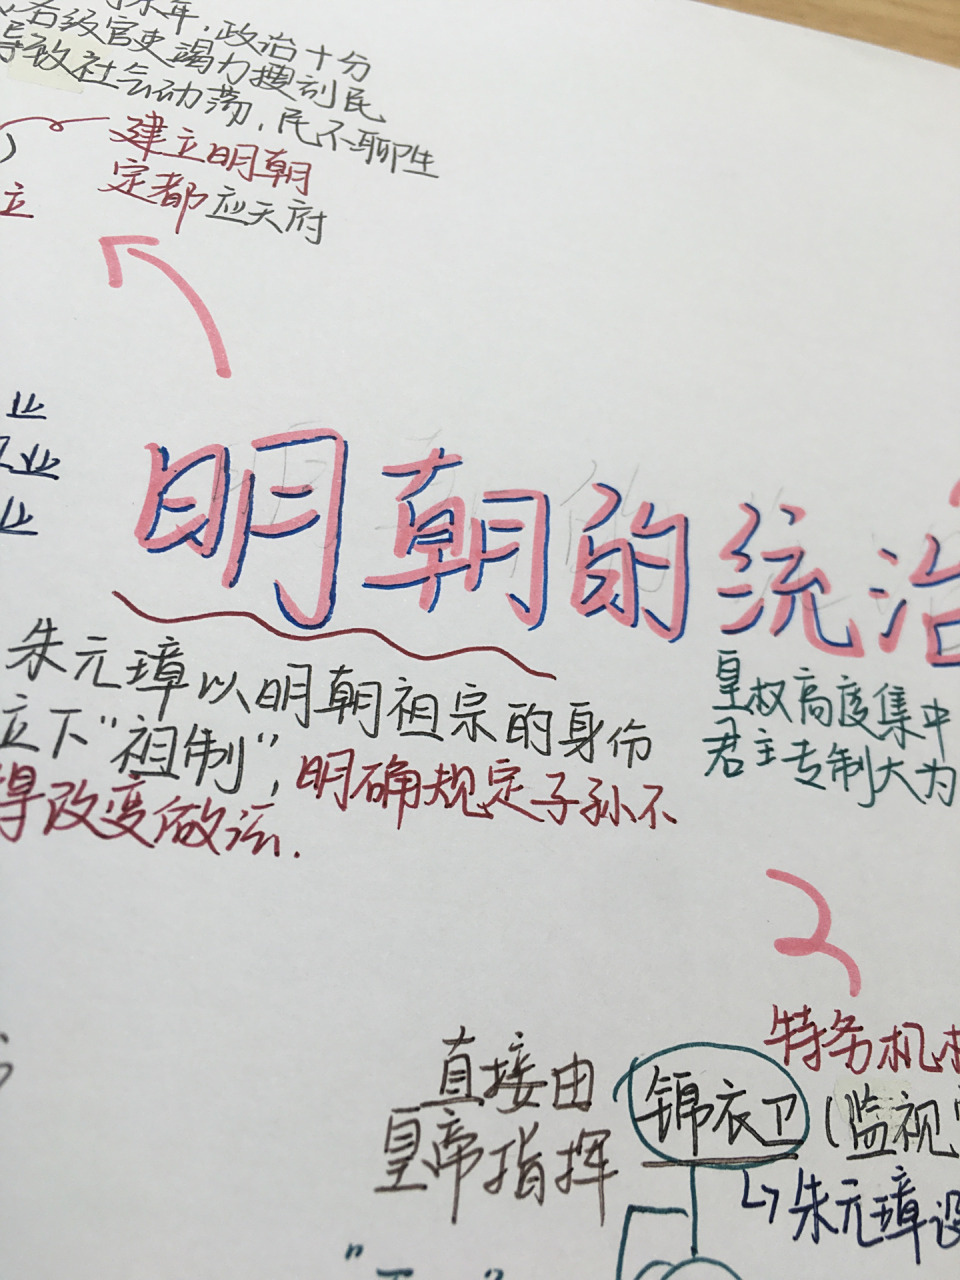 末年，政治十分
各级官吏竭力搜刮民
导致社会动荡，民不聊生
建立明朝
定都应天府
立
业
业
业
明朝的统治
朱元璋以明朝祖宗的身份
立下“祖制”，明确规定子孙不
得改变做法.
皇权高度集中
君主专制大为
特务机
直接由
皇帝指挥
锦衣卫(监视
朱元璋设